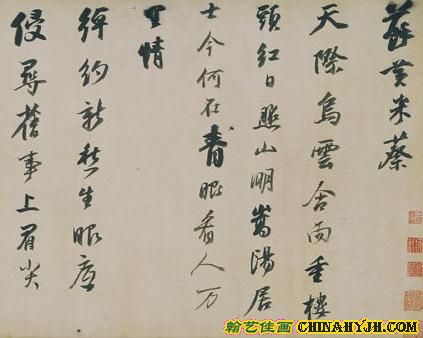 蘇黃米蔡
天際烏雲含雨重樓
頭紅日照山明嵩陽居
士今何在青眼看人万
里情
綽約新嬌生眼底
侵尋舊事上眉尖
翰艺佳画 CHINAHYJH.COM